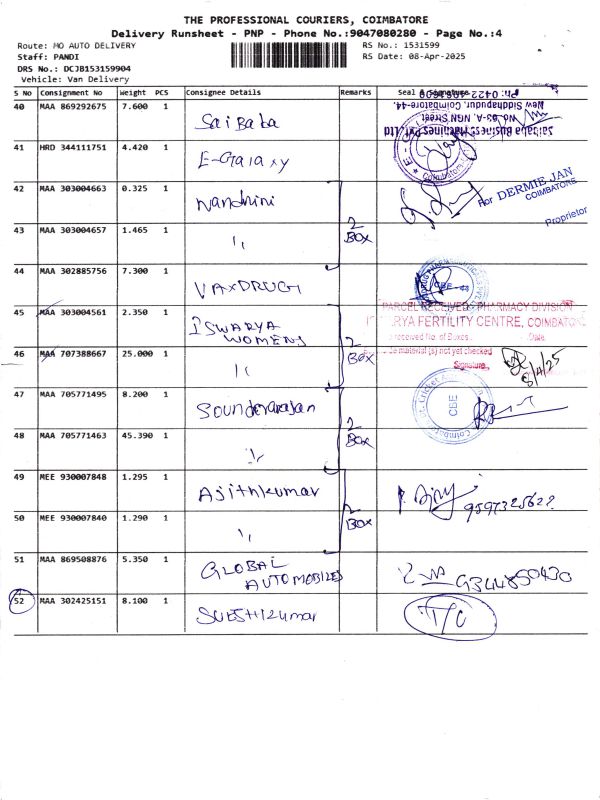 THE PROFESSIONAL COURIERS, COIMBATORE
Delivery Runsheet - PNP - Phone No.:9047080280 - Page No.:4
Route: MO AUTO DELIVERY
RS No.: 1531599
Staff: PANDI
RS Date: 08-Apr-2025
DRS No.: DCJB153159904
Vehicle: Van Delivery
S No Consignment No Weight PCS Consignee Details Remarks Seal & Signature
40 MAA 869292675 7.600 1 Sai Baba
Saibaba Business Machines Pvt. Ltd
NGN Street
New Siddhapudur, Coimbatore-44.
Ph: 0422
41 HRD 344111751 4.420 1 E-Galaxy
42 MAA 303004663 0.325 1 Nandhini
For DERMIE JAN
COIMBATORE
Proprietor
43 MAA 303004657 1.465 1 ,, 2 BOX
44 MAA 302885756 7.300 1 VAXDRUG
45 MAA 303004561 2.350 1 ISWARYA WOMENS
PARCEL RECEIVED PHARMACY DIVISION
FERTILITY CENTRE, COIMBATORE
received No. of Boxes Date
46 MAA 707388667 25.000 1 ,, 2 BOX
material (s) not yet checked
Signature
8/4/25
47 MAA 705771495 8.200 1 Sounderarajan
CBE
48 MAA 705771463 45.390 1 ,, 2 BOX
49 MEE 930007848 1.295 1 Ajithkumar
50 MEE 930007840 1.290 1 ,, 2 BOX
51 MAA 869508876 5.350 1 GLOBAL AUTOMOBILES 9344850430
52 MAA 302425151 8.100 1 Sureshkumar T/C